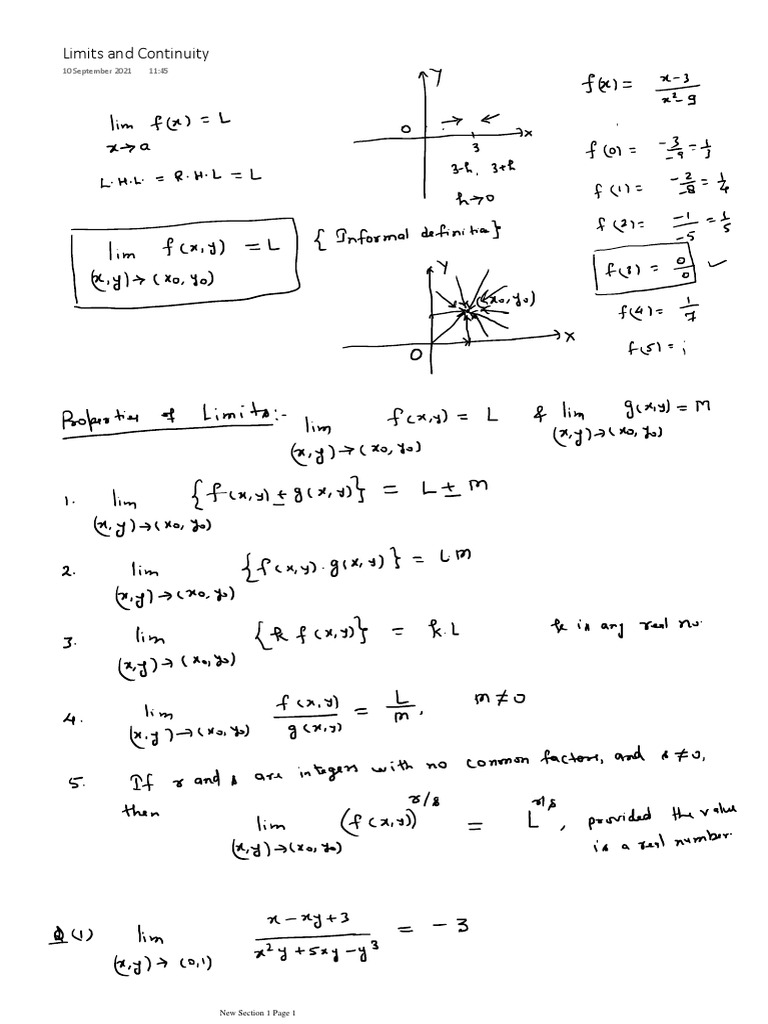 Limits and Continuity
10 September 2021 11:45
lim f(x) = L
x→a
L.H.L. = R.H.L = L
Y
O
X
3
3-h, 3+h
h→0
f(x) = x-3 / x²-9
f(0) = -3/-9 = 1/3
f(1) = -2/-8 = 1/4
f(2) = -1/-5 = 1/5
f(3) = 0/0 ✓
f(4) = 1/7
f(5) = ¡
lim f(x,y) = L
(x,y)→(x0,y0)
{Informal definitio}
Y
(x0,y0)
O
X
Properties of Limits:- lim f(x,y) = L & lim g(x,y) = M
(x,y)→(x0,y0) (x,y)→(x0,y0)
1. lim {f(x,y) ± g(x,y)} = L ± M
(x,y)→(x0,y0)
2. lim {f(x,y).g(x,y)} = LM
(x,y)→(x0,y0)
3. lim {k f(x,y)} = k.L k is any real no.
(x,y)→(x0,y0)
4. lim f(x,y)/g(x,y) = L/M, M≠0
(x,y)→(x0,y0)
5. If r and s are integers with no common factors, and s≠0,
then lim (f(x,y))^r/s = L^r/s, provided the value
(x,y)→(x0,y0) is a real number.
Q(1) lim x-xy+3 / x²y+5xy-y³ = -3
(x,y)→(0,1)
New Section 1 Page 1